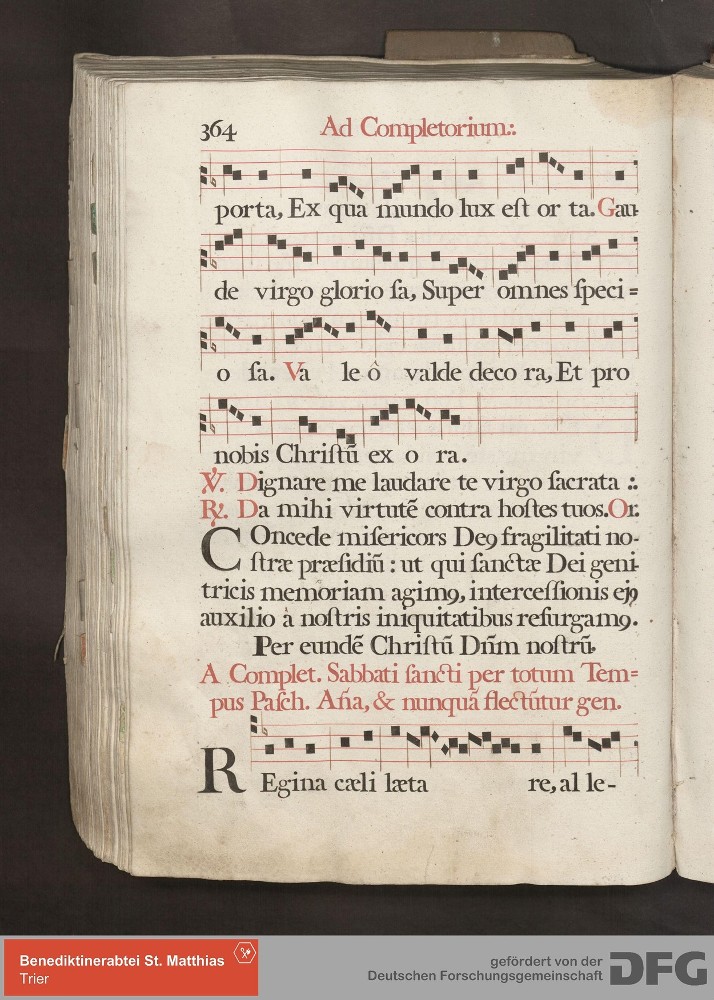 364 Ad Completorium.:
porta, Ex qua mundo lux est or ta. Gau-
de virgo glorio sa, Super omnes speci=
o sa. Va le ô valde deco ra, Et pro
nobis Christũ ex o ra.
℣. Dignare me laudare te virgo sacrata .:.
℟. Da mihi virtutẽ contra hostes tuos. Or.
COncede misericors Deꝰ fragilitati no-
stræ præsidiũ : ut qui sanctæ Dei geni-
tricis memoriam agimꝰ, intercessionis ejꝰ
auxilio à nostris iniquitatibus resurgamꝰ.
Per eundẽ Christũ Dñm nostrũ.
A Complet. Sabbati sancti per totum Tem=
pus Pasch. Aña, & nunquã flectũtur gen.
REgina cæli læta re, al le-
Benediktinerabtei St. Matthias
Trier
gefördert von der
Deutschen Forschungsgemeinschaft DFG